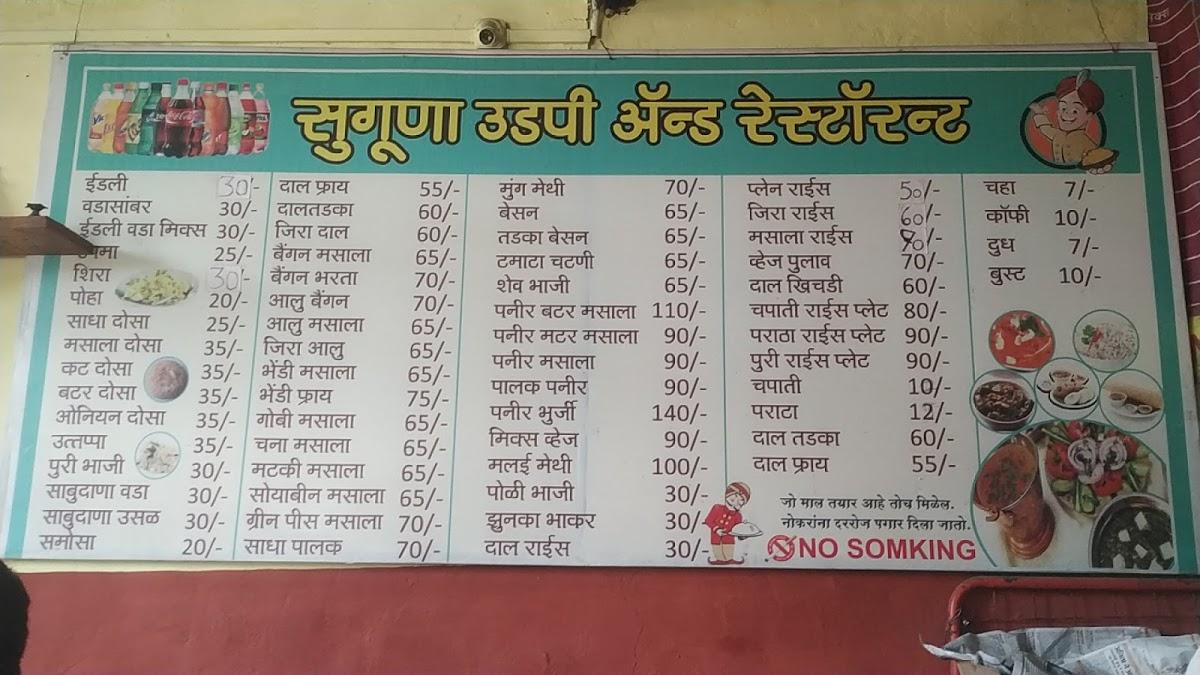 सुगूणा उडपी ॲन्ड रेस्टॉरन्ट
ईडली 30/-
वडासांबर 30/-
ईडली वडा मिक्स 30/-
25/-
शिरा 30/-
पोहा 20/-
साधा दोसा 25/-
मसाला दोसा 35/-
कट दोसा 35/-
बटर दोसा 35/-
ओनियन दोसा 35/-
उत्तप्पा 35/-
पुरी भाजी 30/-
साबुदाणा वडा 30/-
साबुदाणा उसळ 30/-
समोसा 20/-
दाल फ्राय 55/-
दालतडका 60/-
जिरा दाल 60/-
बैंगन मसाला 65/-
बैंगन भरता 70/-
आलु बैंगन 70/-
आलु मसाला 65/-
जिरा आलु 65/-
भेंडी मसाला 65/-
भेंडी फ्राय 75/-
गोबी मसाला 65/-
चना मसाला 65/-
मटकी मसाला 65/-
सोयाबीन मसाला 65/-
ग्रीन पीस मसाला 70/-
साधा पालक 70/-
मुंग मेथी 70/-
बेसन 65/-
तडका बेसन 65/-
टमाटा चटणी 65/-
शेव भाजी 65/-
पनीर बटर मसाला 110/-
पनीर मटर मसाला 90/-
पनीर मसाला 90/-
पालक पनीर 90/-
पनीर भुर्जी 140/-
मिक्स व्हेज 90/-
मलई मेथी 100/-
पोळी भाजी 30/-
झुनका भाकर 30/-
दाल राईस 30/-
प्लेन राईस 50/-
जिरा राईस 60/-
मसाला राईस /-
व्हेज पुलाव 70/-
दाल खिचडी 60/-
चपाती राईस प्लेट 80/-
पराठा राईस प्लेट 90/-
पुरी राईस प्लेट 90/-
चपाती 10/-
पराटा 12/-
दाल तडका 60/-
दाल फ्राय 55/-
जो माल तयार आहे तोच मिळेल.
नोकरांना दररोज पगार दिला जातो.
NO SOMKING
चहा 7/-
कॉफी 10/-
दुध 7/-
बुस्ट 10/-